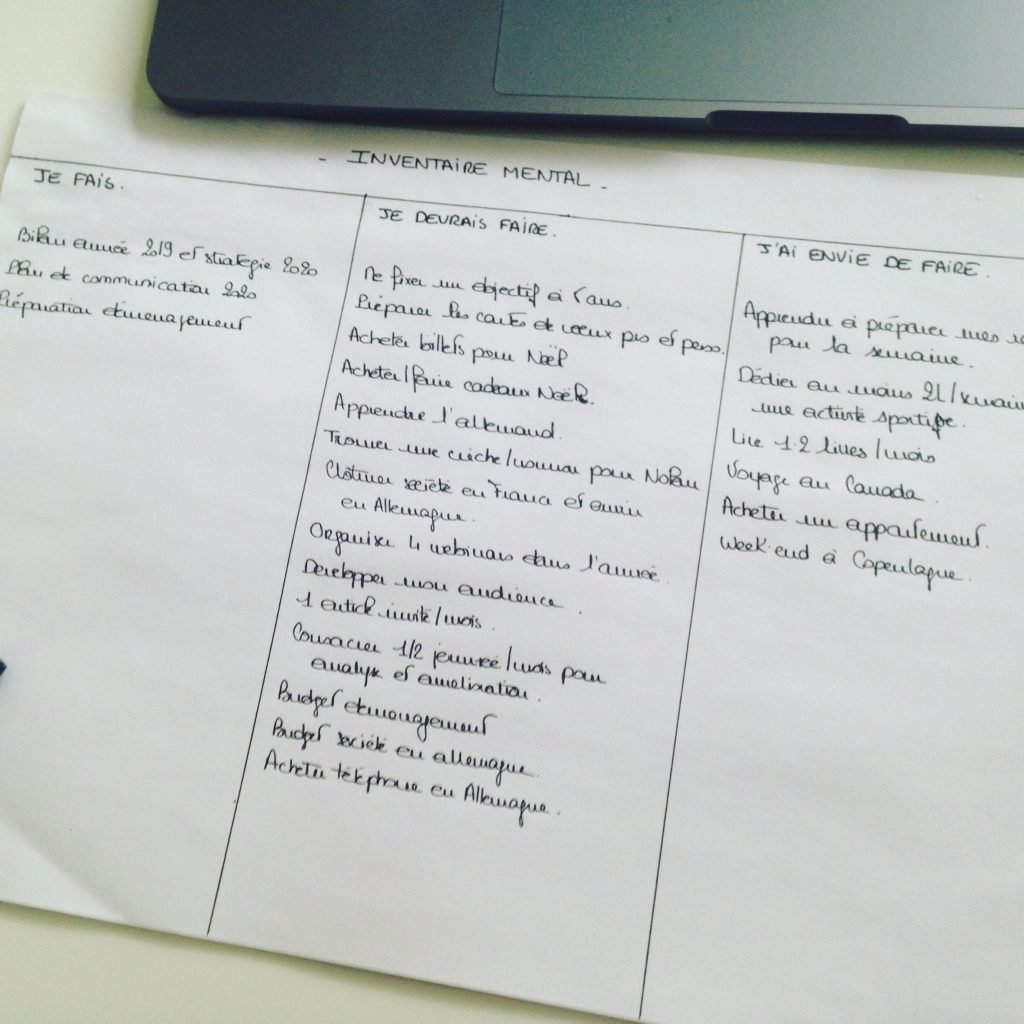 - INVENTAIRE MENTAL -
JE FAIS.
Bilan année 2019 et stratégie 2020
Plan de communication 2020
Préparation déménagement
JE DEVRAIS FAIRE.
Me fixer un objectif à 5 ans.
Préparer les cartes de voeux pro et perso.
Acheter billets pour Noël
Acheter/faire cadeaux Noël.
Apprendre l'allemand.
Trouver une crèche/nounou pour Nolan
Clôturer société en France et ouvrir
en Allemagne.
Organiser 4 webinars dans l'année.
Développer mon audience.
1 article invité/mois.
Consacrer 1/2 journée/mois pour
analyse et amélioration.
Budget déménagement
Budget société en allemagne.
Acheter téléphone en Allemagne.
J'AI ENVIE DE FAIRE.
Apprendre à préparer mes
pour la semaine.
Dédier au moins 2h/semain
une activité sportive.
Lire 1-2 livres/mois
Voyage au Canada.
Acheter un appartement.
Week-end à Copenhague.